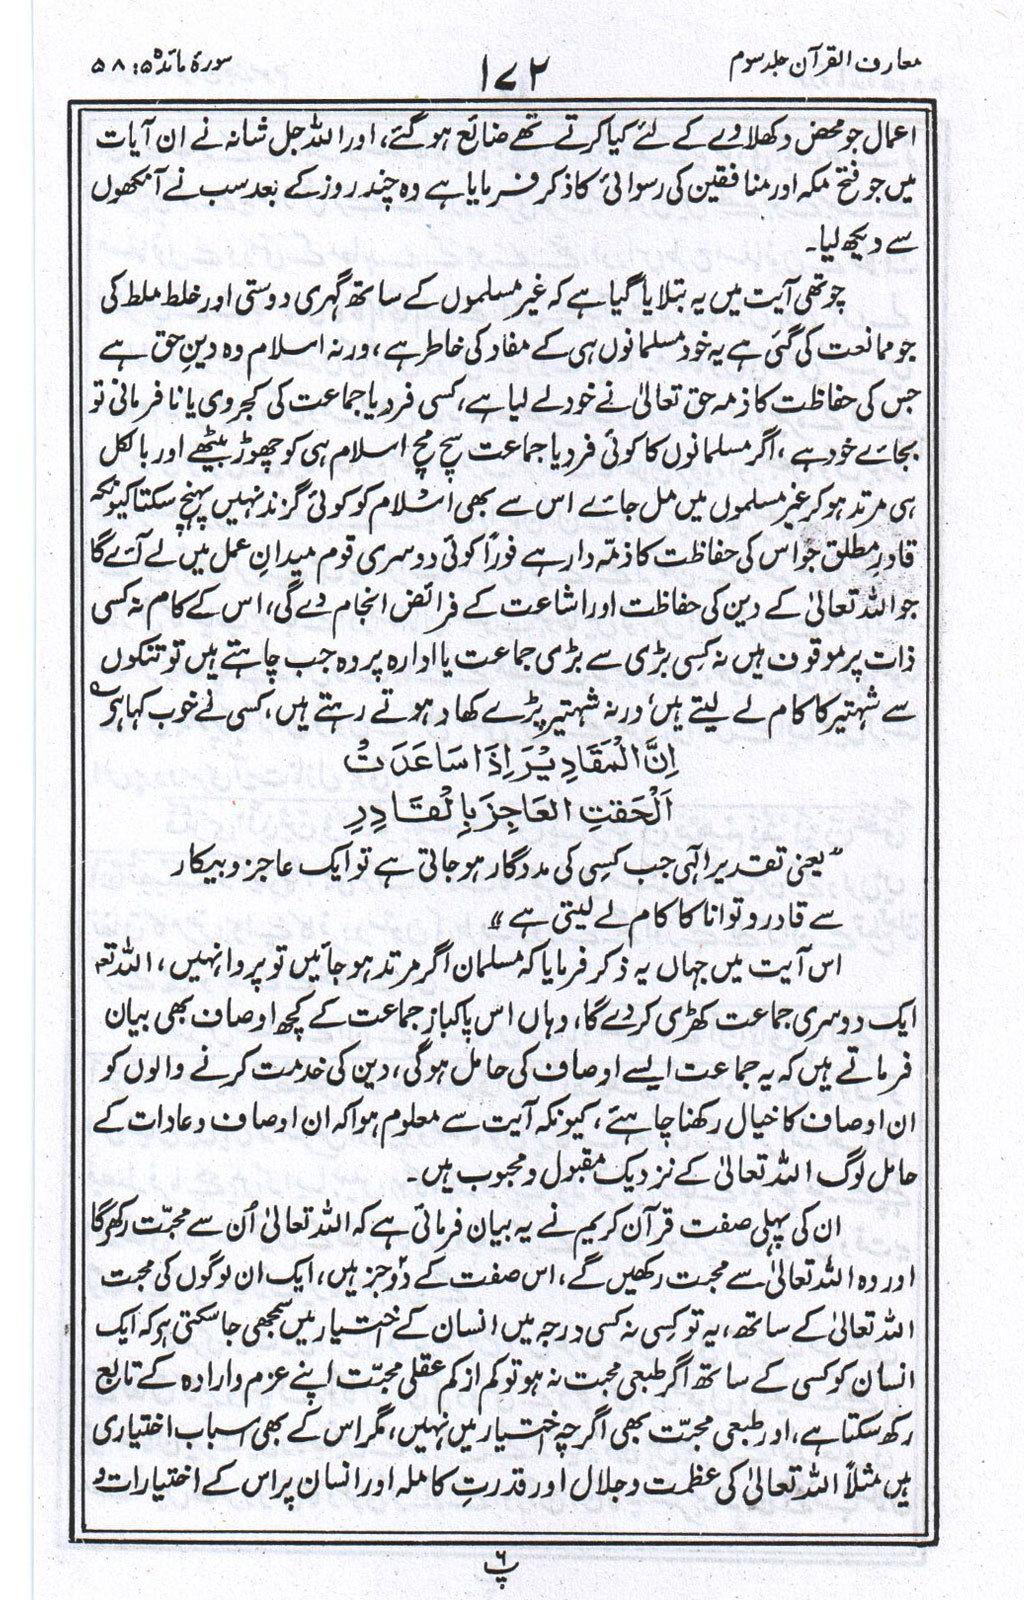 معارف القرآن جلد سوم
۱۷۲
سورۂ مائدہ ۵ : ۵۸
اعمال جو محض دکھلاوے کے لئے کیا کرتے تھے ضائع ہو گئے، اور اللہ جل شانہ نے ان آیات
میں جو فتح مکہ اور منافقین کی رسوائی کا ذکر فرمایا ہے وہ چند روز کے بعد سب نے آنکھوں
سے دیکھ لیا۔
چوتھی آیت میں یہ بتلایا گیا ہے کہ غیر مسلموں کے ساتھ گہری دوستی اور خلط ملط کی
جو ممانعت کی گئی ہے یہ خود مسلمانوں ہی کے مفاد کی خاطر ہے، ورنہ اسلام وہ دینِ حق ہے
جس کی حفاظت کا ذمہ حق تعالیٰ نے خود لے لیا ہے، کسی فرد یا جماعت کی کجروی یا نافرمانی تو
بجائے خود ہے، اگر مسلمانوں کا کوئی فرد یا جماعت سچ مچ اسلام ہی کو چھوڑ بیٹھے اور بالکل
ہی مرتد ہو کر غیر مسلموں میں مل جائے اس سے بھی اسلام کو کوئی گزند نہیں پہنچ سکتا کیونکہ
قادرِ مطلق جو اس کی حفاظت کا ذمّہ دار ہے فوراً کوئی دوسری قوم میدانِ عمل میں لے آئے گا
جو اللہ تعالیٰ کے دین کی حفاظت اور اشاعت کے فرائض انجام دے گی، اس کے کام نہ کسی
ذات پر موقوف ہیں نہ کسی بڑی سے بڑی جماعت یا ادارہ پر وہ جب چاہتے ہیں تو تنکوں
سے شہتیر کا کام لے لیتے ہیں، ورنہ شہتیر پڑے کھاد ہوتے رہتے ہیں، کسی نے خوب کہا ہے
اِنَّ الْمَقَادِیْرَ اِذَا سَاعَدَتْ
اَلْحَقَتِ الْعَاجِزَ بِالْقَادِرِ
”یعنی تقدیر الٰہی جب کسی کی مددگار ہو جاتی ہے تو ایک عاجز و بیکار
سے قادر و توانا کا کام لے لیتی ہے“
اس آیت میں جہاں یہ ذکر فرمایا کہ مسلمان اگر مرتد ہو جائیں تو پروا نہیں، اللہ تعہ
ایک دوسری جماعت کھڑی کر دے گا، وہاں اس پاکباز جماعت کے کچھ اوصاف بھی بیان
فرماتے ہیں کہ یہ جماعت ایسے اوصاف کی حامل ہوگی، دین کی خدمت کرنے والوں کو
ان اوصاف کا خیال رکھنا چاہئے، کیونکہ آیت سے معلوم ہوا کہ ان اوصاف و عادات کے
حامل لوگ اللہ تعالیٰ کے نزدیک مقبول و محبوب ہیں۔
ان کی پہلی صفت قرآن کریم نے یہ بیان فرمائی ہے کہ اللہ تعالیٰ اُن سے محبّت رکھے گا
اور وہ اللہ تعالیٰ سے محبت رکھیں گے، اس صفت کے دو جز ہیں، ایک ان لوگوں کی محبت
اللہ تعالیٰ کے ساتھ، یہ تو کسی نہ کسی درجہ میں انسان کے اختیار میں سمجھی جا سکتی ہے کہ ایک
انسان کو کسی کے ساتھ اگر طبعی محبت نہ ہو تو کم از کم عقلی محبّت اپنے عزم و ارادہ کے تابع
رکھ سکتا ہے، اور طبعی محبّت بھی اگرچہ اختیار میں نہیں، مگر اس کے بھی اسباب اختیاری
ہیں مثلاً اللہ تعالیٰ کی عظمت و جلال اور قدرتِ کاملہ اور انسان پر اس کے اختیارات و
پ ۶